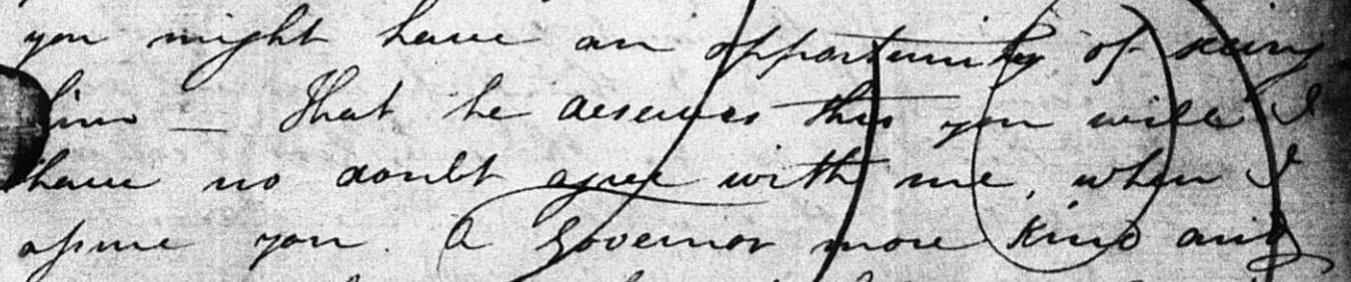 you might have an opportunity of seeing
him — That he deserves this you will I
have no doubt agree with me, when I
assure you. A Governor more kind and